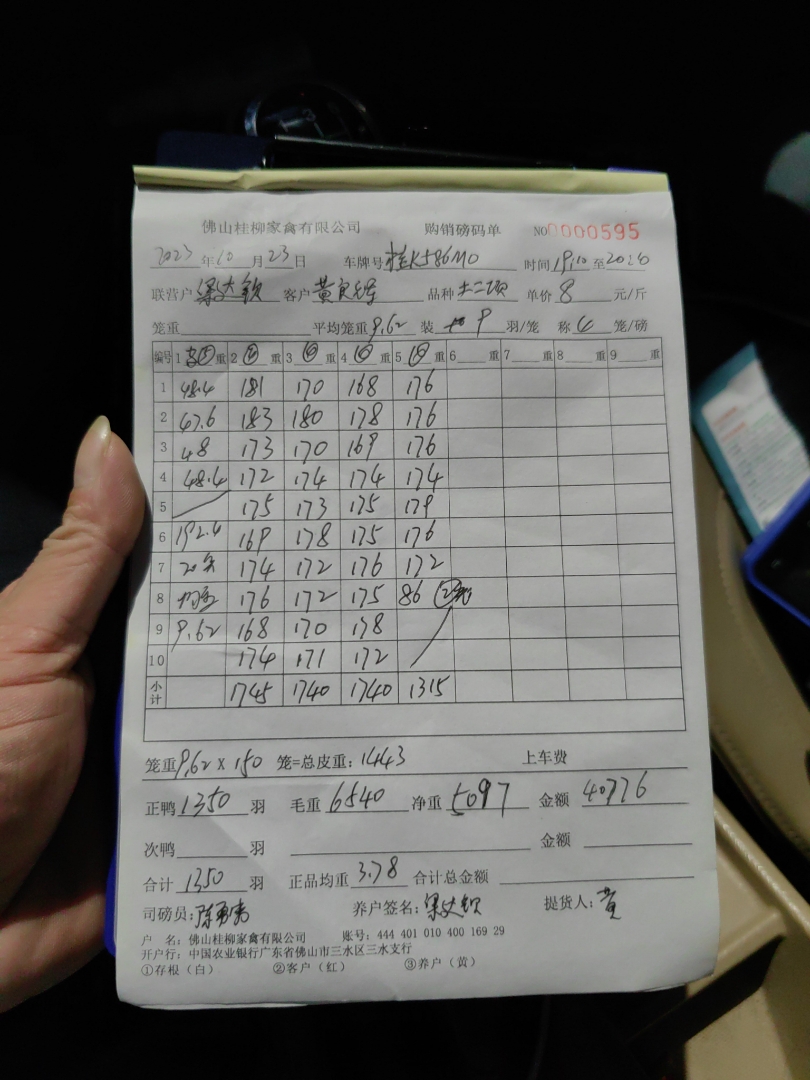 佛山桂柳家禽有限公司 购销磅码单 NO 0000595
2023年10月23日 车牌号 桂K586M0 时间 19,10 至 2020
联营户 梁达钦 客户 黄良 品种 土二项 单价 8 元/斤
笼重 平均笼重 9.62 装 9 羽/笼 称 6 笼/磅
编号 1 重 2 重 3 重 4 重 5 重 6 重 7 重 8 重 9 重
1 48.4 181 170 168 176
2 47.6 183 180 178 176
3 48 173 170 169 176
4 48.4 172 174 174 174
5 175 173 175 179
6 192.4 169 178 175 176
7 20 174 172 176 172
8 均重 176 172 175 86
9 9.62 168 170 178
10 174 171 172
小计 1745 1740 1740 1315
笼重 9.62 X 150 笼=总皮重: 1443 上车费
正鸭 1350 羽 毛重 6540 净重 5097 金额 40776
次鸭 羽 金额
合计 1350 羽 正品均重 3.78 合计总金额
司磅员: 陈 养户签名: 梁达钦 提货人: 黄
户 名: 佛山桂柳家禽有限公司 账号: 444 401 010 400 169 29
开户行: 中国农业银行广东省佛山市三水区三水支行
①存根(白) ②客户(红) ③养户(黄)